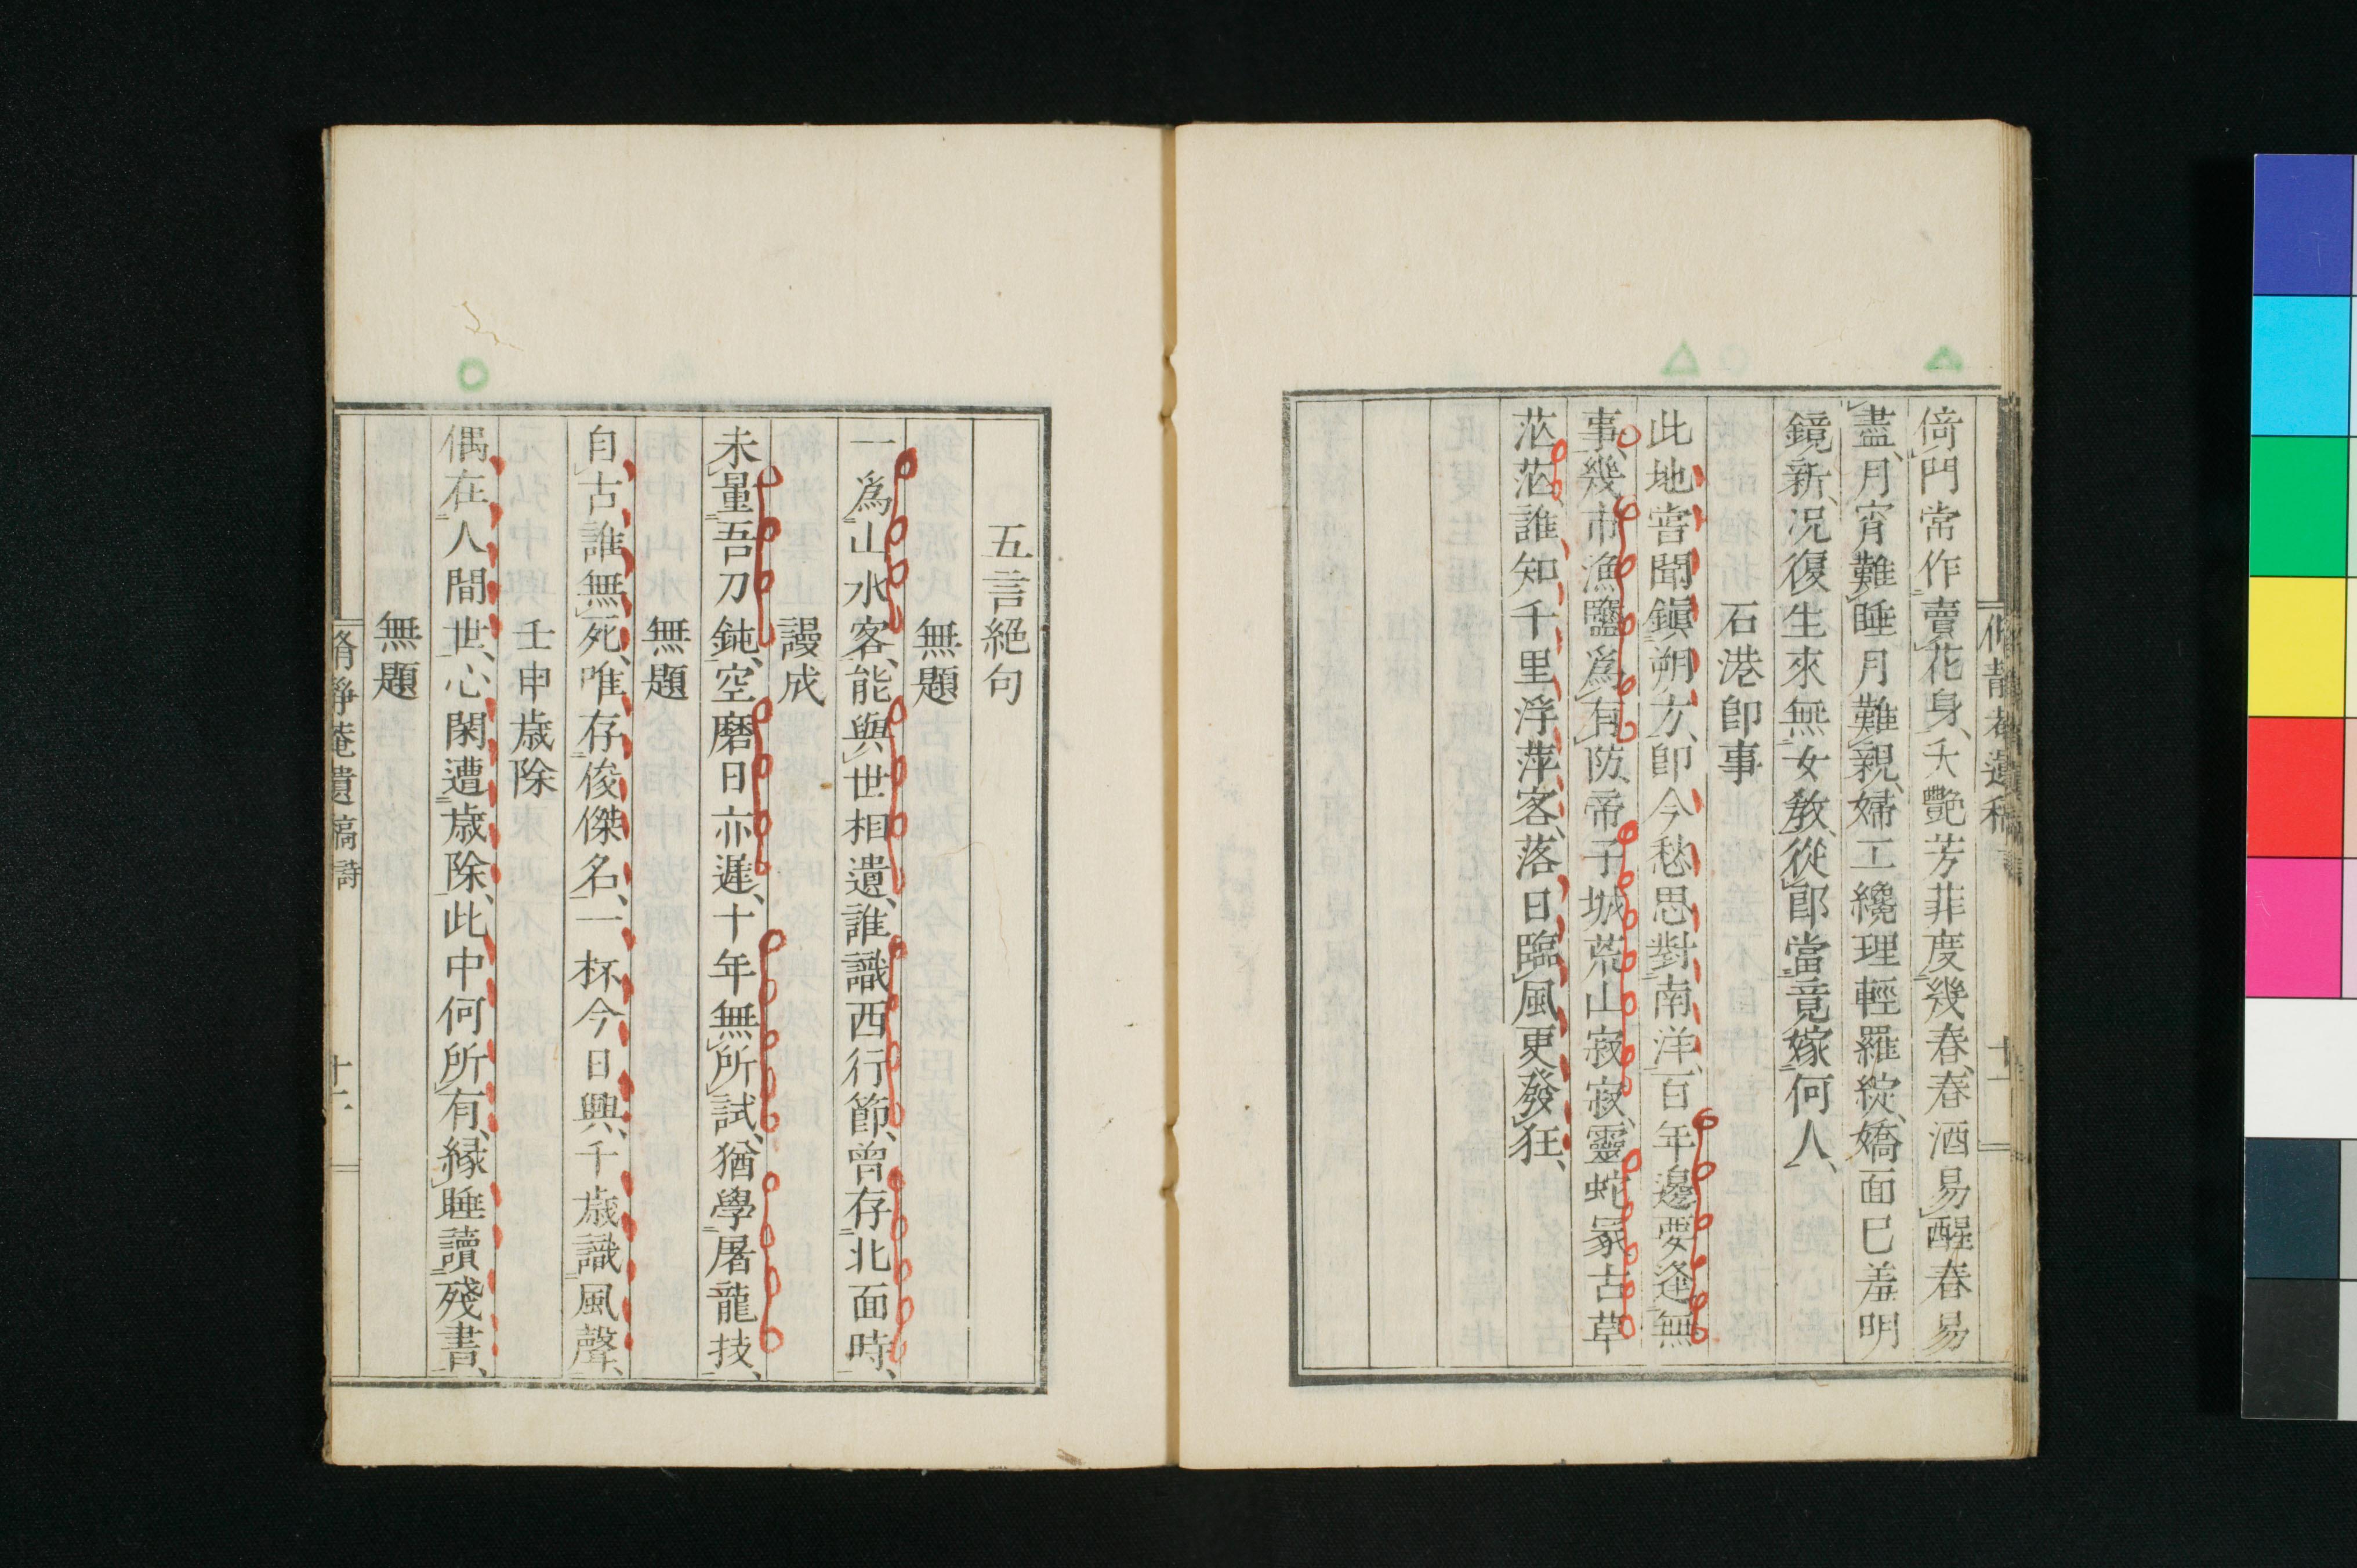 倚門常作賣花身、夭艷芳菲度幾春、春酒易醒春易
盡、月宵難睡月難親、婦工纔理輕羅綻、嬌面已羞明
鏡新、况復生來無女教、從郎當竟嫁何人、
石港卽事
此地嘗聞鎭朔方、卽今愁思對南洋、百年邊要逢無
事、幾市漁鹽爲有防、帝子城荒山寂寂、靈蛇冢古草
茫茫、誰知千里浮萍客、落日臨風更發狂、
五言絕句
無題
一爲山水客、能與世相遺、誰識西行節、曾存北面時、
謾成
未量吾刀鈍、空磨日亦遲、十年無所試、猶學屠龍技、
無題
自古誰無死、唯存俊傑名、一杯今日興、千歳識風聲、
壬申歳除
偶在人間世、心閑遭歳除、此中何所有、緣睡讀殘書、
無題
脩靜菴遺稿 詩
十二